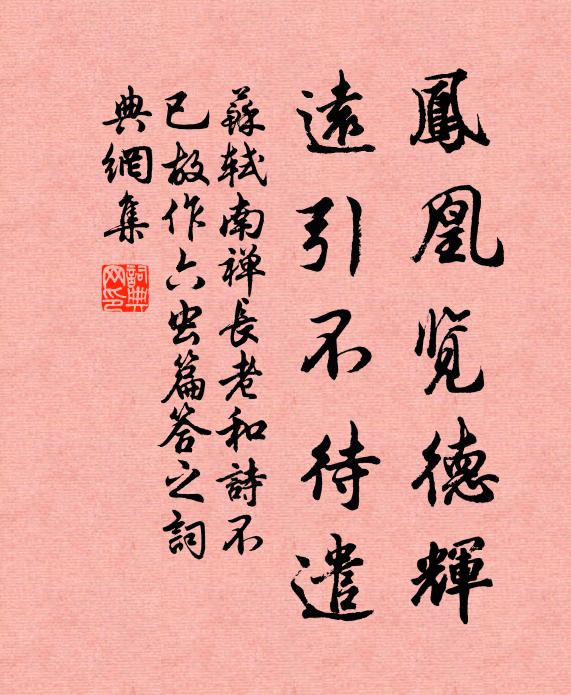 鳳凰覽德輝
遠引不待遣
蘇軾南禅長老和詩不
已故作六虫篇答之詞
典網集
詞典网印